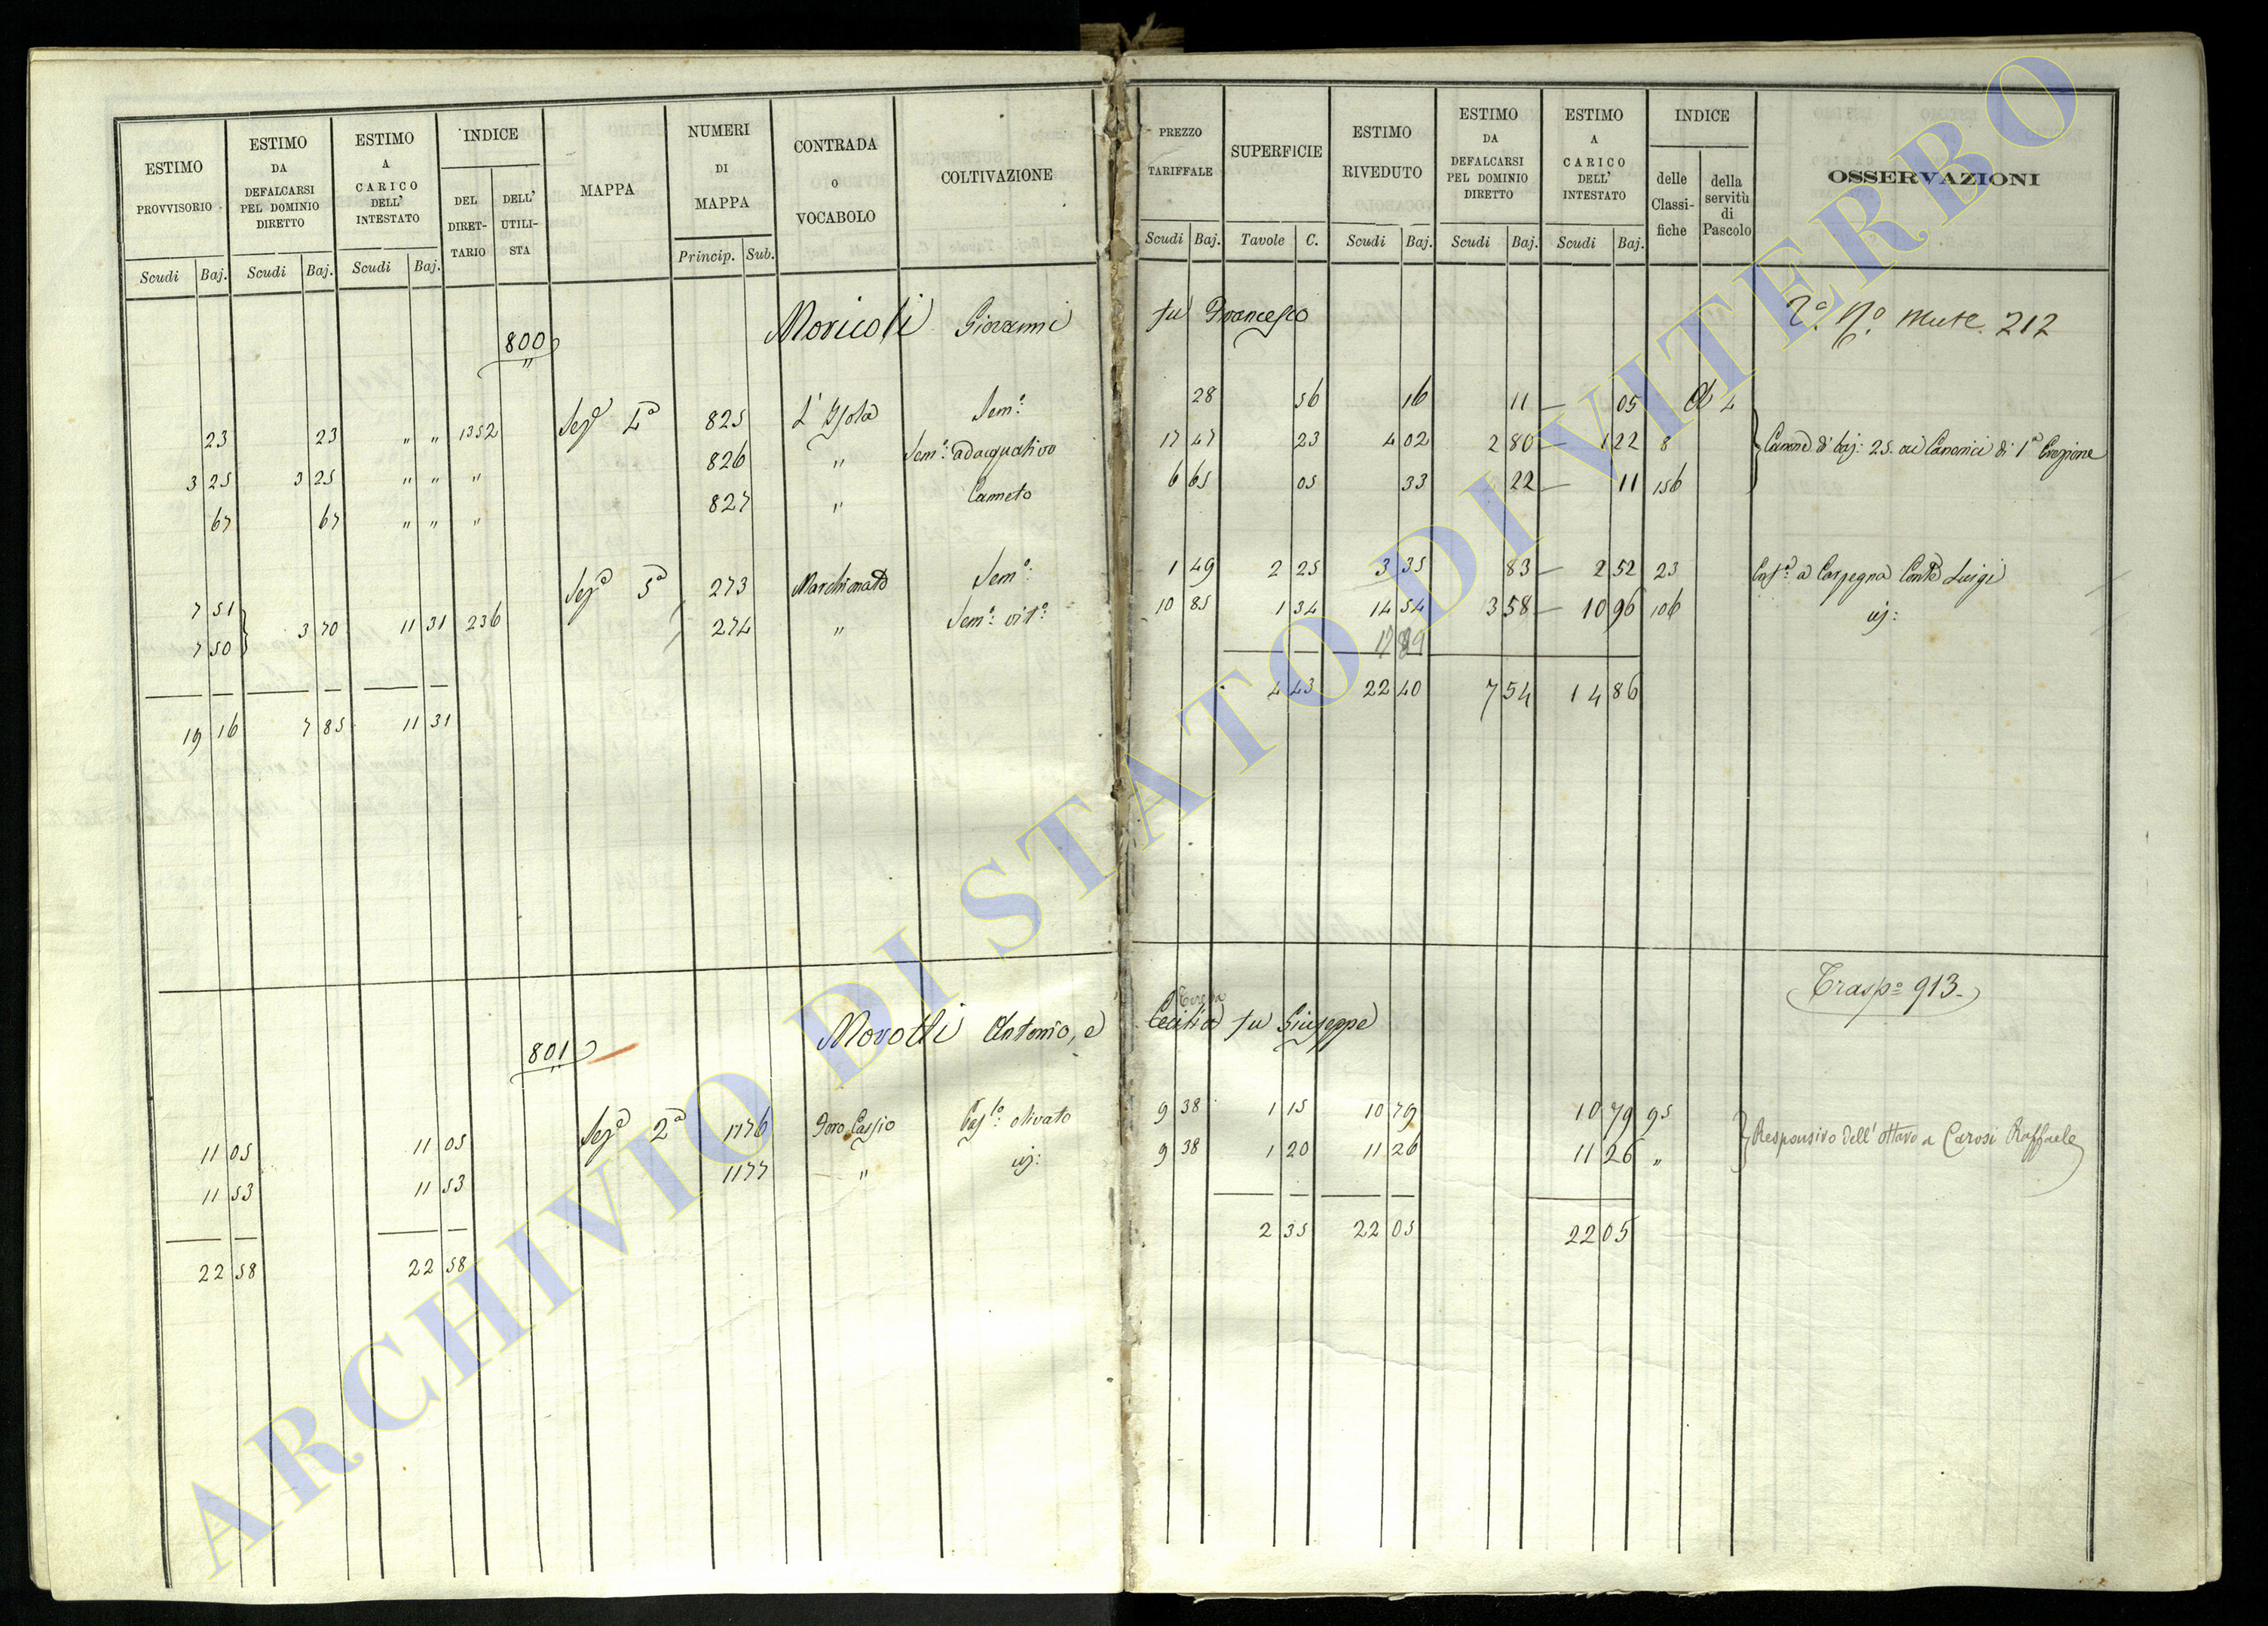 ESTIMO PROVVISORIO
ESTIMO DA DEFALCARSI PEL DOMINIO DIRETTO
ESTIMO A CARICO DELL' INTESTATO
INDICE
DEL DIRETTARIO
DELL' UTILISTA
MAPPA
NUMERI DI MAPPA
CONTRADA O VOCABOLO
COLTIVAZIONE
PREZZO TARIFFALE
SUPERFICIE
ESTIMO RIVEDUTO
ESTIMO DA DEFALCARSI PEL DOMINIO DIRETTO
ESTIMO A CARICO DELL' INTESTATO
INDICE
delle Classifiche
della servitù di Pascolo
OSSERVAZIONI
Scudi Baj. Scudi Baj. Scudi Baj. Princip. Sub. Scudi Baj. Tavole C. Scudi Baj. Scudi Baj. Scudi Baj.
800 Moricoli Giovanni fu Francesco 2° N° Mut. 212
23 23 " " 1352 Sez.e 4a 825 L'Isola Sem.o 28 56 16 11 — 05
3 25 3 25 " " " 826 " Sem.o adacquativo 17 47 23 4 02 2 80 — 1 22 8 Canone di baj: 25. ai Canonici di 1a Erezione
67 67 " " " 827 " Canneto 6 65 05 33 22 — 11 156
7 51 Sez.e 5a 273 Marchionato Sem.o 1 49 2 25 3 35 83 — 2 52 23 a Carpegna Conte Luigi
7 50 3 70 11 31 236 274 " Sem.o vit.o 10 85 1 34 14 54 3 58 — 10 96 106 id:
17 89
19 16 7 85 11 31 4 43 22 40 7 54 14 86
801 Morotti Antonio, e Cecilia fu Giuseppe Trasp.o 913.
Teresa
11 05 11 05 Sez.e 2a 1176 Foro Cassio Pas.o olivato 9 38 1 15 10 79 10 79 95 Responsivo dell' ottavo a Carosi Raffaele
11 53 11 53 1177 " id: 9 38 1 20 11 26 11 26 "
22 58 22 58 2 35 22 05 22 05
ARCHIVIO DI STATO DI VITERBO